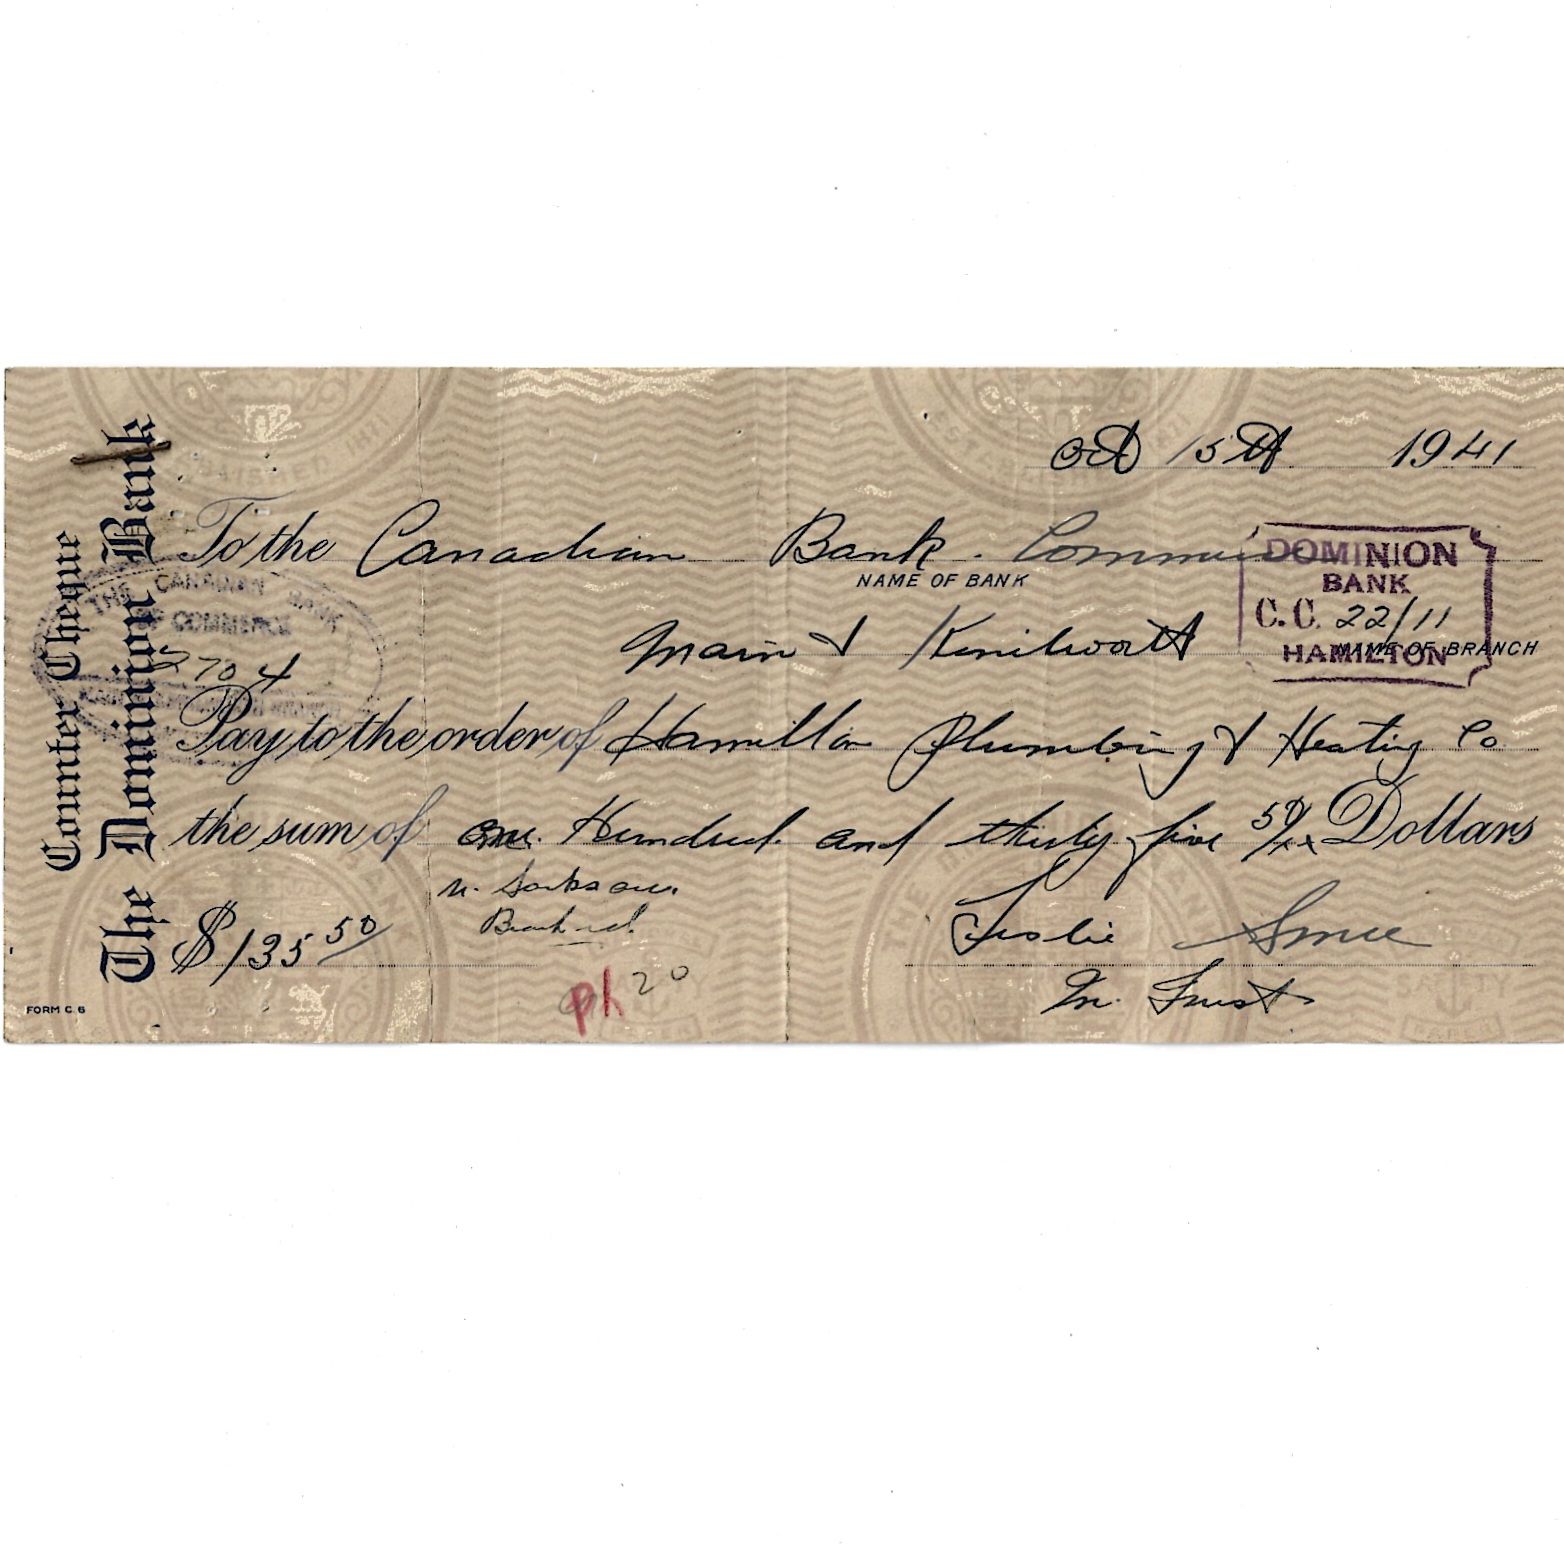 Counter Cheque
The Dominion Bank
Oct 15th 1941
To the Canadian Bank. Commerce
NAME OF BANK
DOMINION
BANK
C.C. 22/11
HAMILTON
THE CANADIAN BANK
OF COMMERCE
Main & Kenilworth
NAME OF BRANCH
2704
Pay to the order of Hamilton Plumbing & Heating Co
the sum of One Hundred and thirty five 50/xx Dollars
$ 135 50/
Leslie
In Trust
ph 20
FORM C. 6